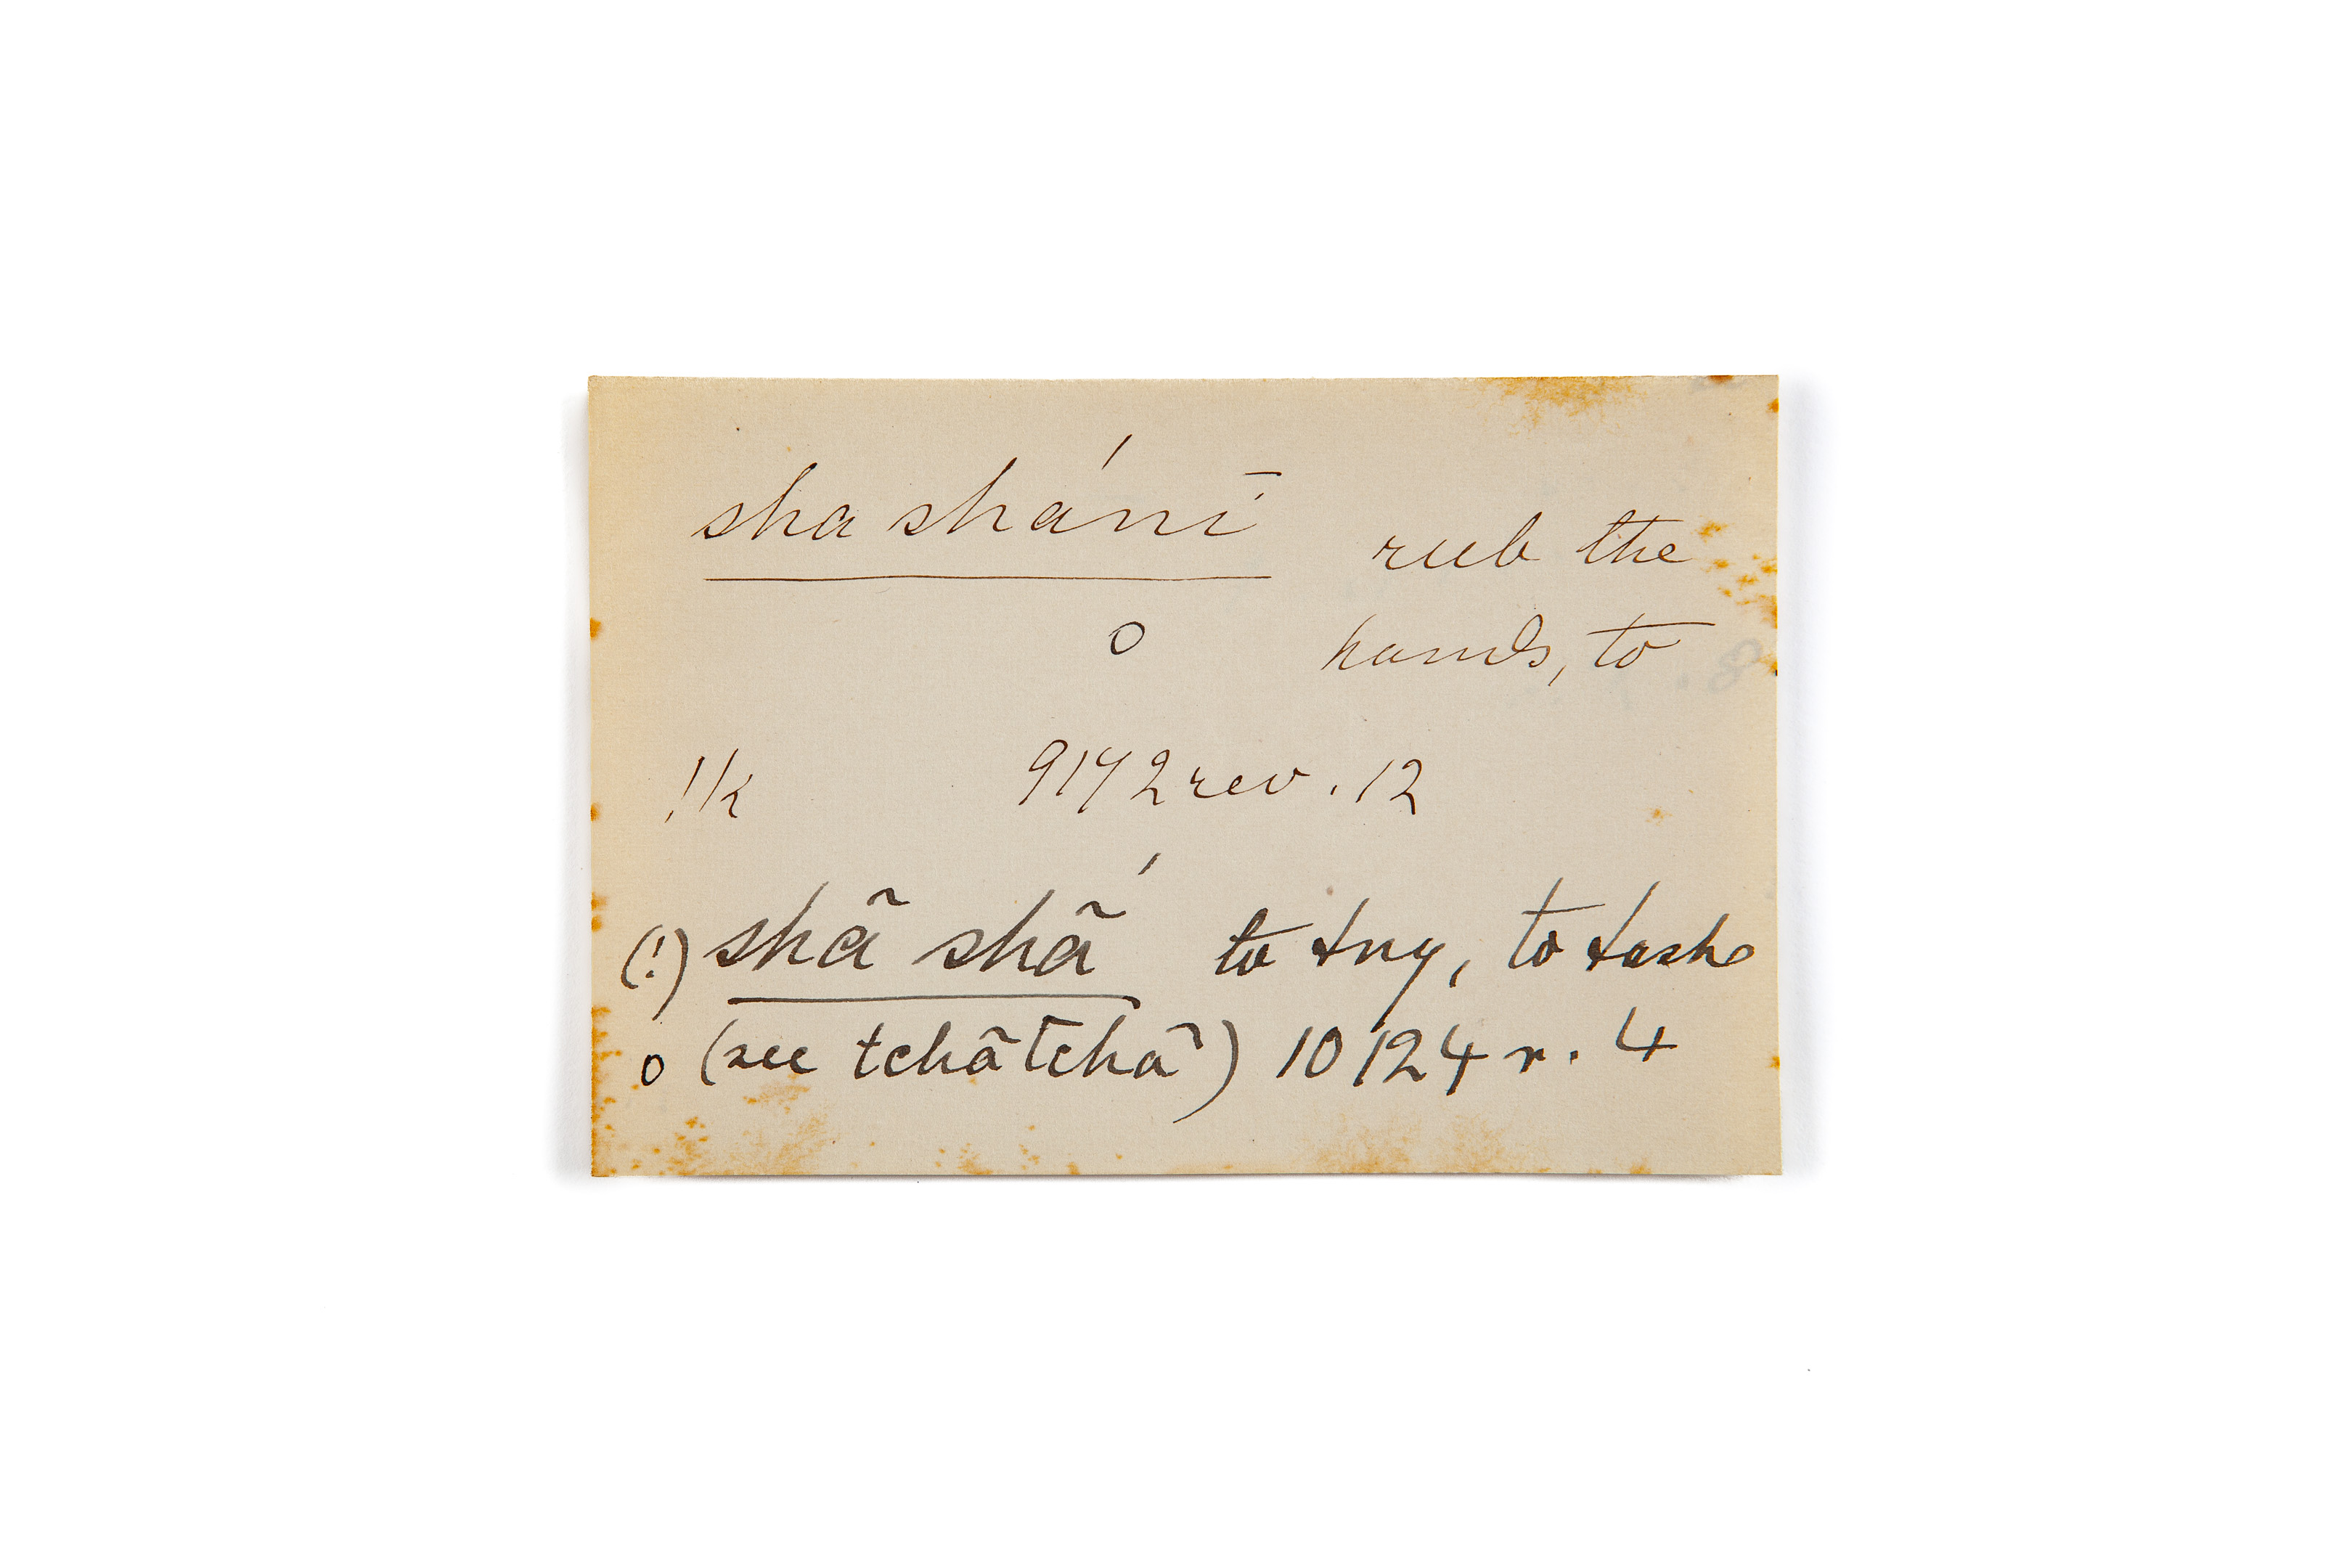 sha shánī rub the
o hands, to
!k 9142 rev. 12
(!) shā̃ shā̃́ to try, to taste
o (see tchãtchã) 10124 r. 4